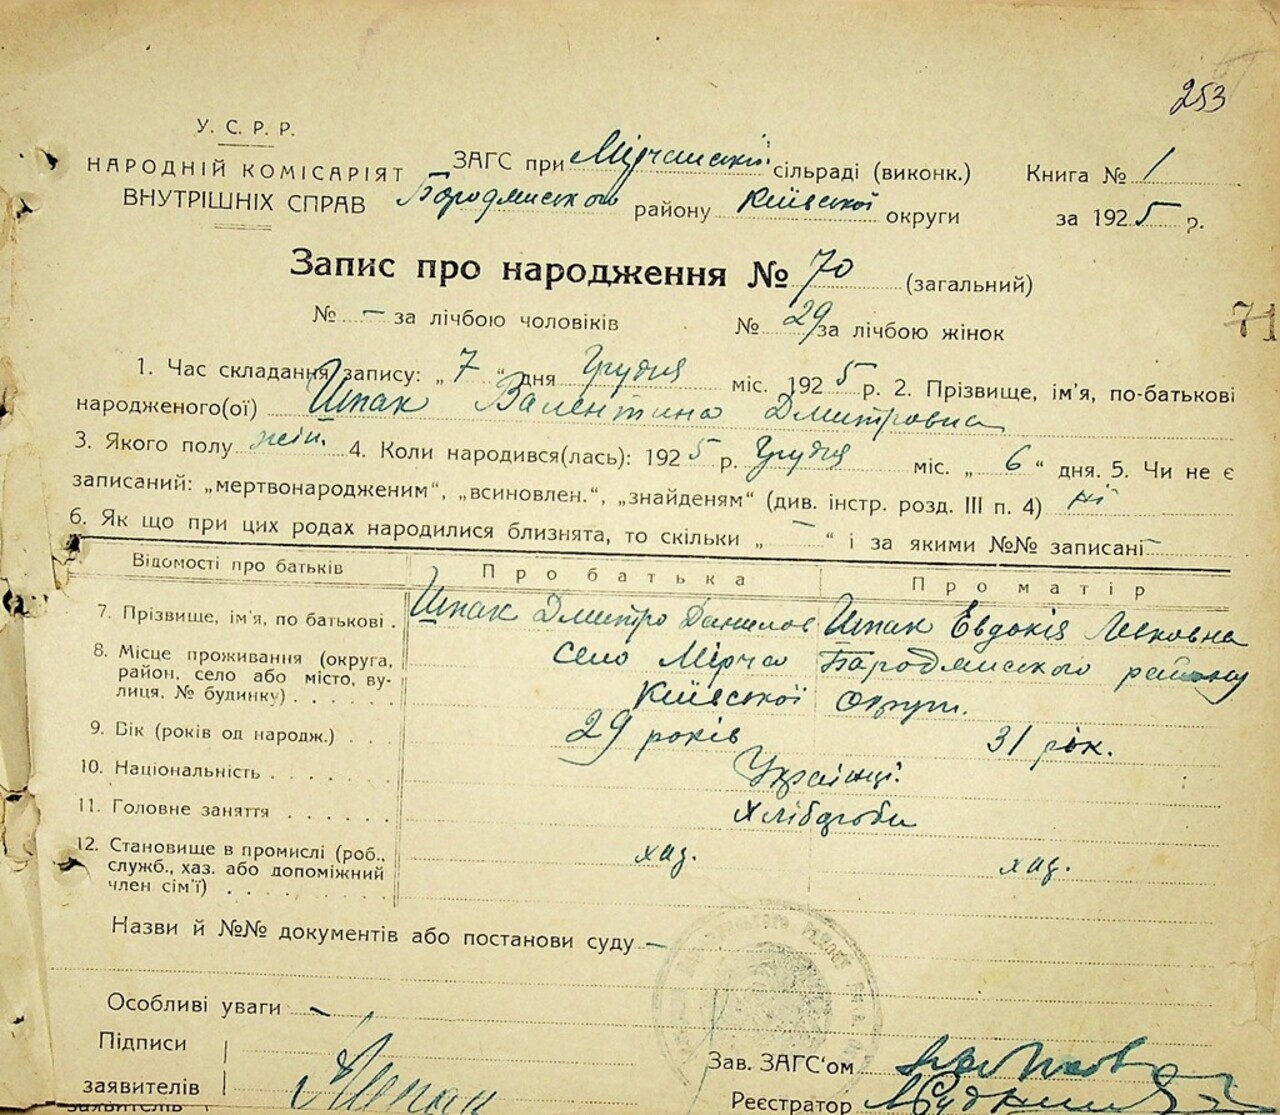 253
У. С. Р. Р.
НАРОДНІЙ КОМІСАРІЯТ
ВНУТРІШНІХ СПРАВ
ЗАГС при Мірчанській сільраді (виконк.) Книга № 1
Бородянського району Київської округи за 1925 р.
Запис про народження № 70 (загальний)
№ – за лічбою чоловіків № 29 за лічбою жінок
71
1. Час складання запису: „ 7 “ дня Грудня міс. 1925 р. 2. Прізвище, ім'я, по-батькові
народженого(ої) Шпак Валентина Дмитровна
3. Якого полу жін. 4. Коли народився(лась): 1925 р. Грудня міс. „ 6 “ дня. 5. Чи не є
записаний: „мертвонародженим“, „всиновлен.“, „знайденям“ (див. інстр. розд. III п. 4) ні
6. Як що при цих родах народилися близнята, то скільки „ – “ і за якими №№ записані –
Відомості про батьків Про батька Про матір
7. Прізвище, ім'я, по батькові . Шпак Дмитро Данилов Шпак Евдокія Левковна
8. Місце проживання (округа, район, село або місто, вулиця, № будинку) . . . . . . Село Мірча Бародянського району
Київської округи.
9. Вік (років од народж.) . . . 29 років 31 рік.
10. Національність . . . . . . . Українці.
11. Головне заняття . . . . . . Хлібороби
12. Становище в промислі (роб., служб., хаз. або допоміжний член сім'ї) . . . . . . . . хаз. хаз.
Назви й №№ документів або постанови суду –
Особливі уваги –
Підписи
заявителів Шпак
Зав. ЗАГС'ом
Реєстратор